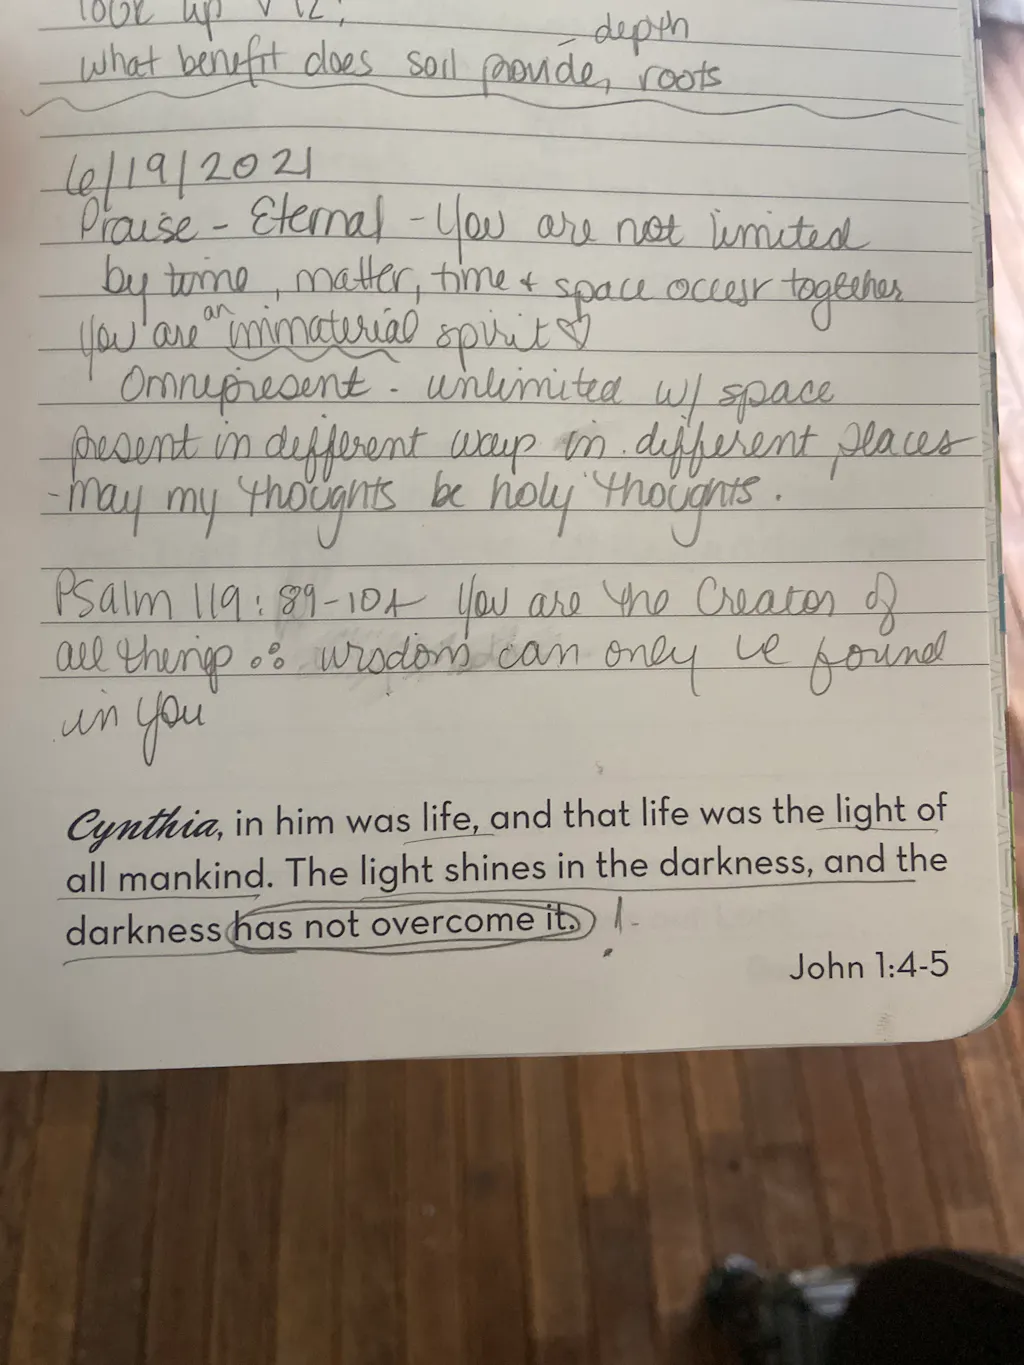 look up v 12:
- depth
what benefit does soil provide, roots
6/19/2021
Praise - Eternal - You are not limited
by time, matter, time + space occur together
You are an immaterial spirit ♡
Omnipresent - unlimited w/ space
present in different ways in different places
- may my thoughts be holy thoughts.
Psalm 119: 89-104 You are the Creator of
all things ∴ wisdom can only be found
in you
Cynthia, in him was life, and that life was the light of
all mankind. The light shines in the darkness, and the
darkness has not overcome it. !
John 1:4-5